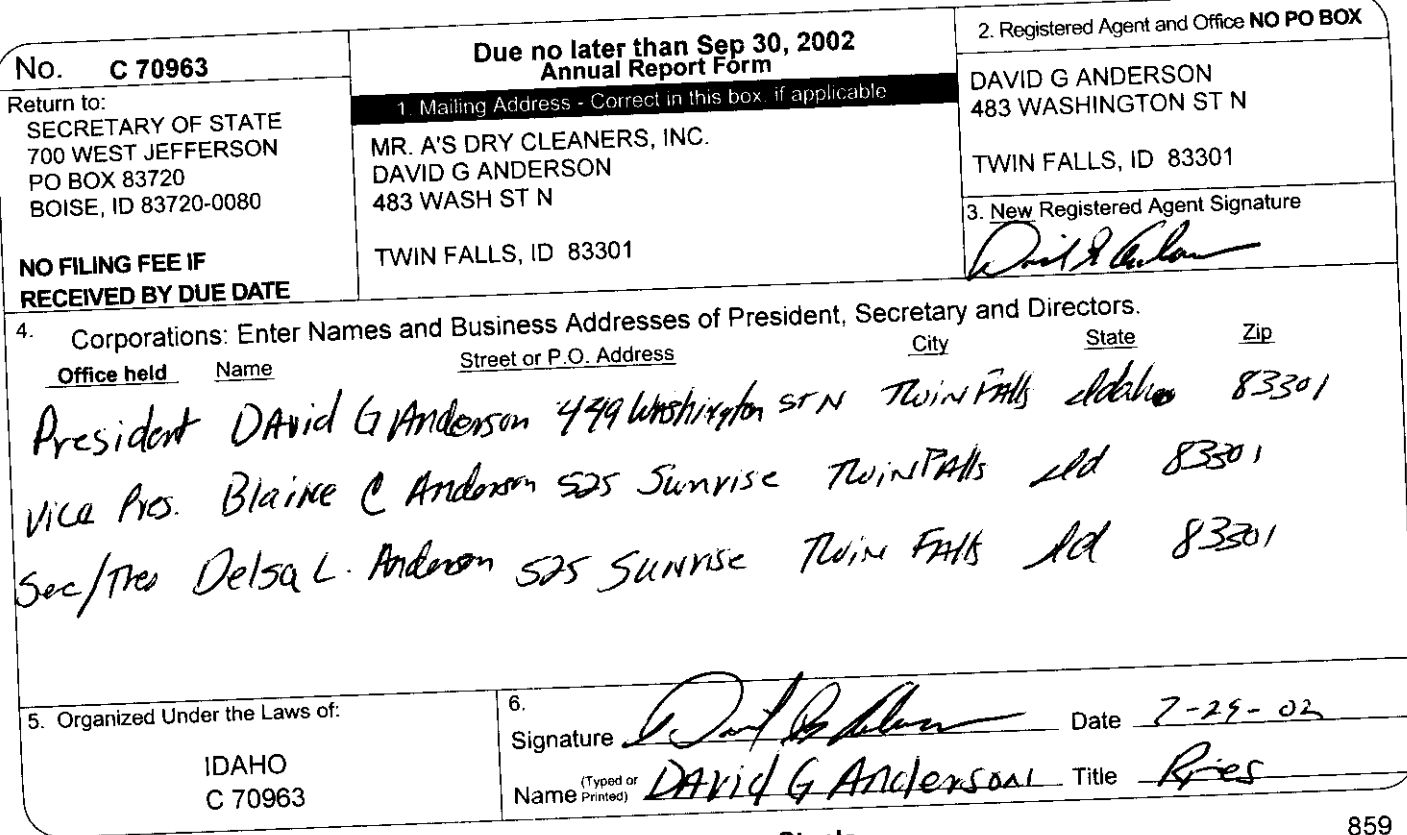 No. C 70963
Return to:
SECRETARY OF STATE
700 WEST JEFFERSON
PO BOX 83720
BOISE, ID 83720-0080
NO FILING FEE IF
RECEIVED BY DUE DATE
Due no later than Sep 30, 2002
Annual Report Form
1. Mailing Address - Correct in this box, if applicable
MR. A'S DRY CLEANERS, INC.
DAVID G ANDERSON
483 WASH ST N
TWIN FALLS, ID 83301
2. Registered Agent and Office NO PO BOX
DAVID G ANDERSON
483 WASHINGTON ST N
TWIN FALLS, ID 83301
3. New Registered Agent Signature
4. Corporations: Enter Names and Business Addresses of President, Secretary and Directors.
Office held Name Street or P.O. Address City State Zip
President DAvid G Anderson 449 Washington ST N Twin FAlls Idaho 83301
Vice Pres. Blaine C Anderson 525 Sunrise Twin FAlls Id 83301
Sec/Tres Delsa L. Anderson 525 Sunrise Twin FAlls Id 83301
5. Organized Under the Laws of:
IDAHO
C 70963
6.
Signature Date 7-29-02
Name (Typed or Printed) DAvid G Anderson Title Pres
859